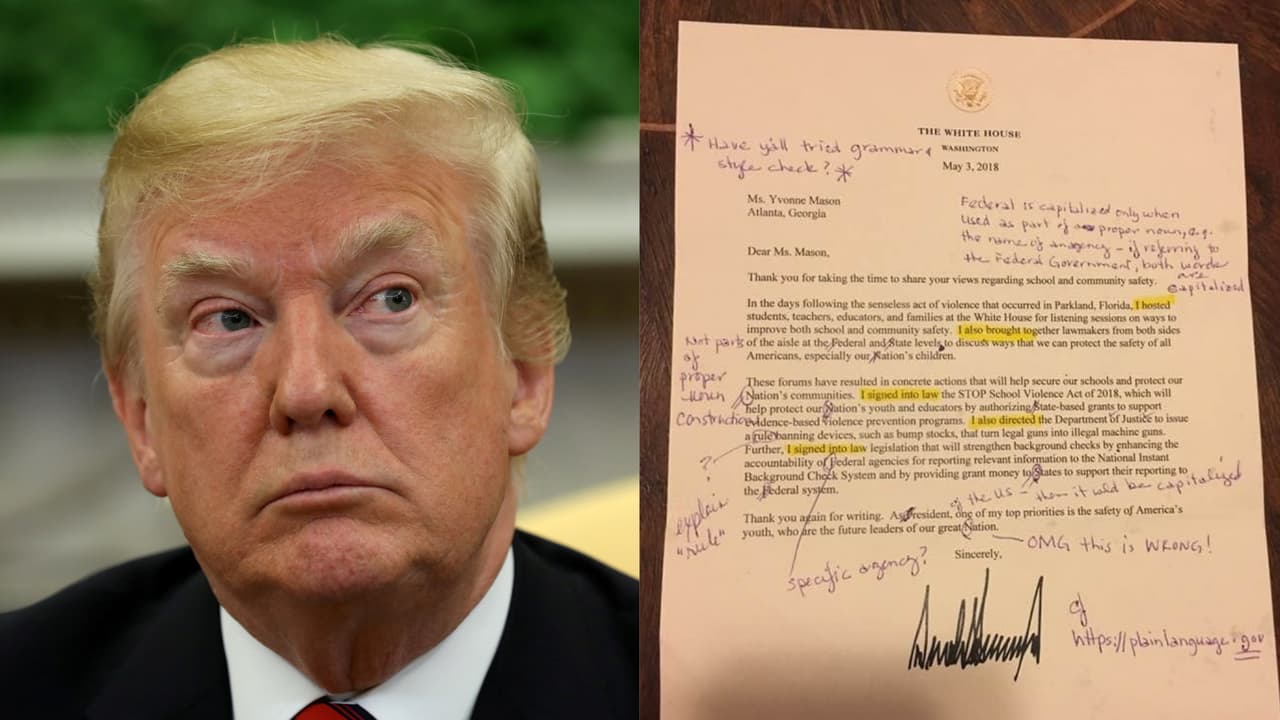 THE WHITE HOUSE
WASHINGTON
May 3, 2018
* Have y'all tried grammar &
style check? *
Ms. Yvonne Mason
Atlanta, Georgia
Federal is capitalized only when
used as part of a proper noun, e.g.
the name of an agency - if referring to
the Federal Government, both words
are
capitalized
Dear Ms. Mason,
Thank you for taking the time to share your views regarding school and community safety.
In the days following the senseless act of violence that occurred in Parkland, Florida, I hosted
students, teachers, educators, and families at the White House for listening sessions on ways to
improve both school and community safety. I also brought together lawmakers from both sides
of the aisle at the Federal and State levels to discuss ways that we can protect the safety of all
Americans, especially our Nation's children.
Not part
of
proper
noun
construction
These forums have resulted in concrete actions that will help secure our schools and protect our
Nation's communities. I signed into law the STOP School Violence Act of 2018, which will
help protect our Nation's youth and educators by authorizing State-based grants to support
evidence-based violence prevention programs. I also directed the Department of Justice to issue
a rule banning devices, such as bump stocks, that turn legal guns into illegal machine guns.
Further, I signed into law legislation that will strengthen background checks by enhancing the
accountability of Federal agencies for reporting relevant information to the National Instant
Background Check System and by providing grant money to States to support their reporting to
the Federal system.
?
explain
"rule"
of the US - then it would be capitalized
Thank you again for writing. As President, one of my top priorities is the safety of America's
youth, who are the future leaders of our great Nation.
OMG this is WRONG!
Sincerely,
specific agency?
cf
https://plainlanguage.gov